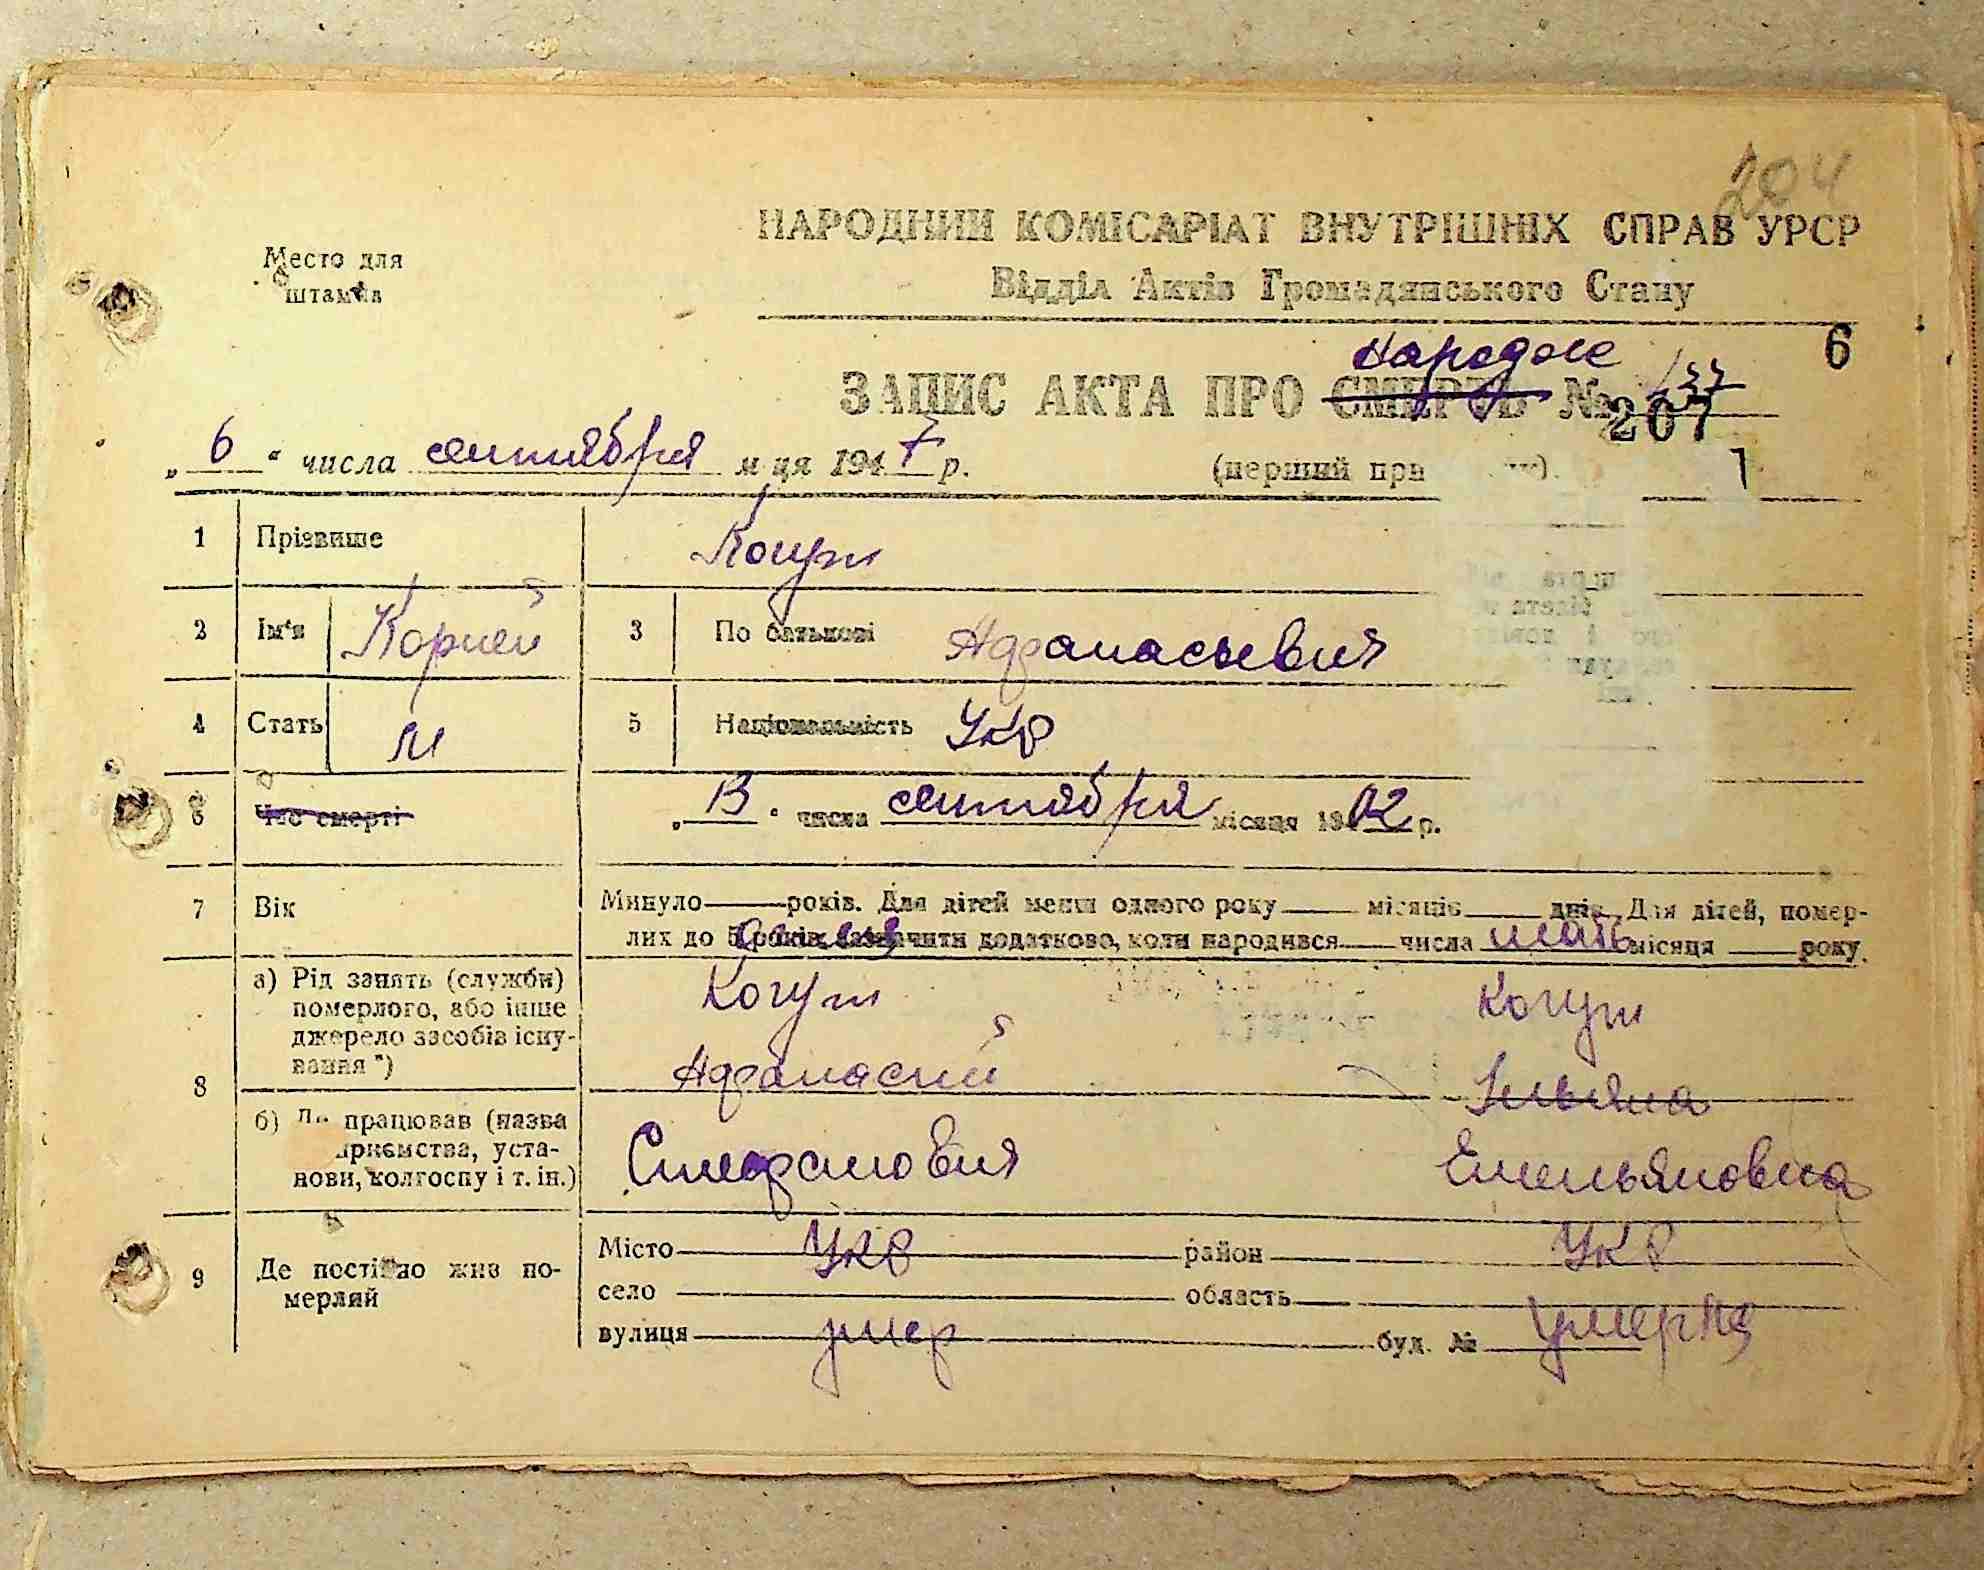 204
НАРОДНИЙ КОМІСАРІАТ ВНУТРІШНІХ СПРАВ УРСР
Место для
штампа
Відділ Актів Громадянського Стану
6
Народже
ЗАПИС АКТА ПРО СМЕРТЬ № 137
207
„ 6 “ числа сентября м-ця 1947 р. (перший при
1
1 Прізвище Когут
2 Ім'я Корней 3 По батькові Афанасьевич
4 Стать М 5 Національність Укр
6 Час смерті „ 13 “ числа сентября місяця 1902 р.
7 Вік Минуло — років. Для дітей менш одного року — місяців — днів. Для дітей, помер-
лих до 5 років, зазначити додатково, коли народився — числа мать місяця — року.
8 а) Рід занять (служби) померлого, або інше джерело засобів існування*)
Когут Когут
Афанасий Ульяна
б) Де працював (назва
приємства, уста-
нови, колгоспу і т. ін.)
Стефанович Емельяновна
9 Де постійно жив по-
мерлий
Місто Укр район Укр
село область
вулиця умер буд. № умерла